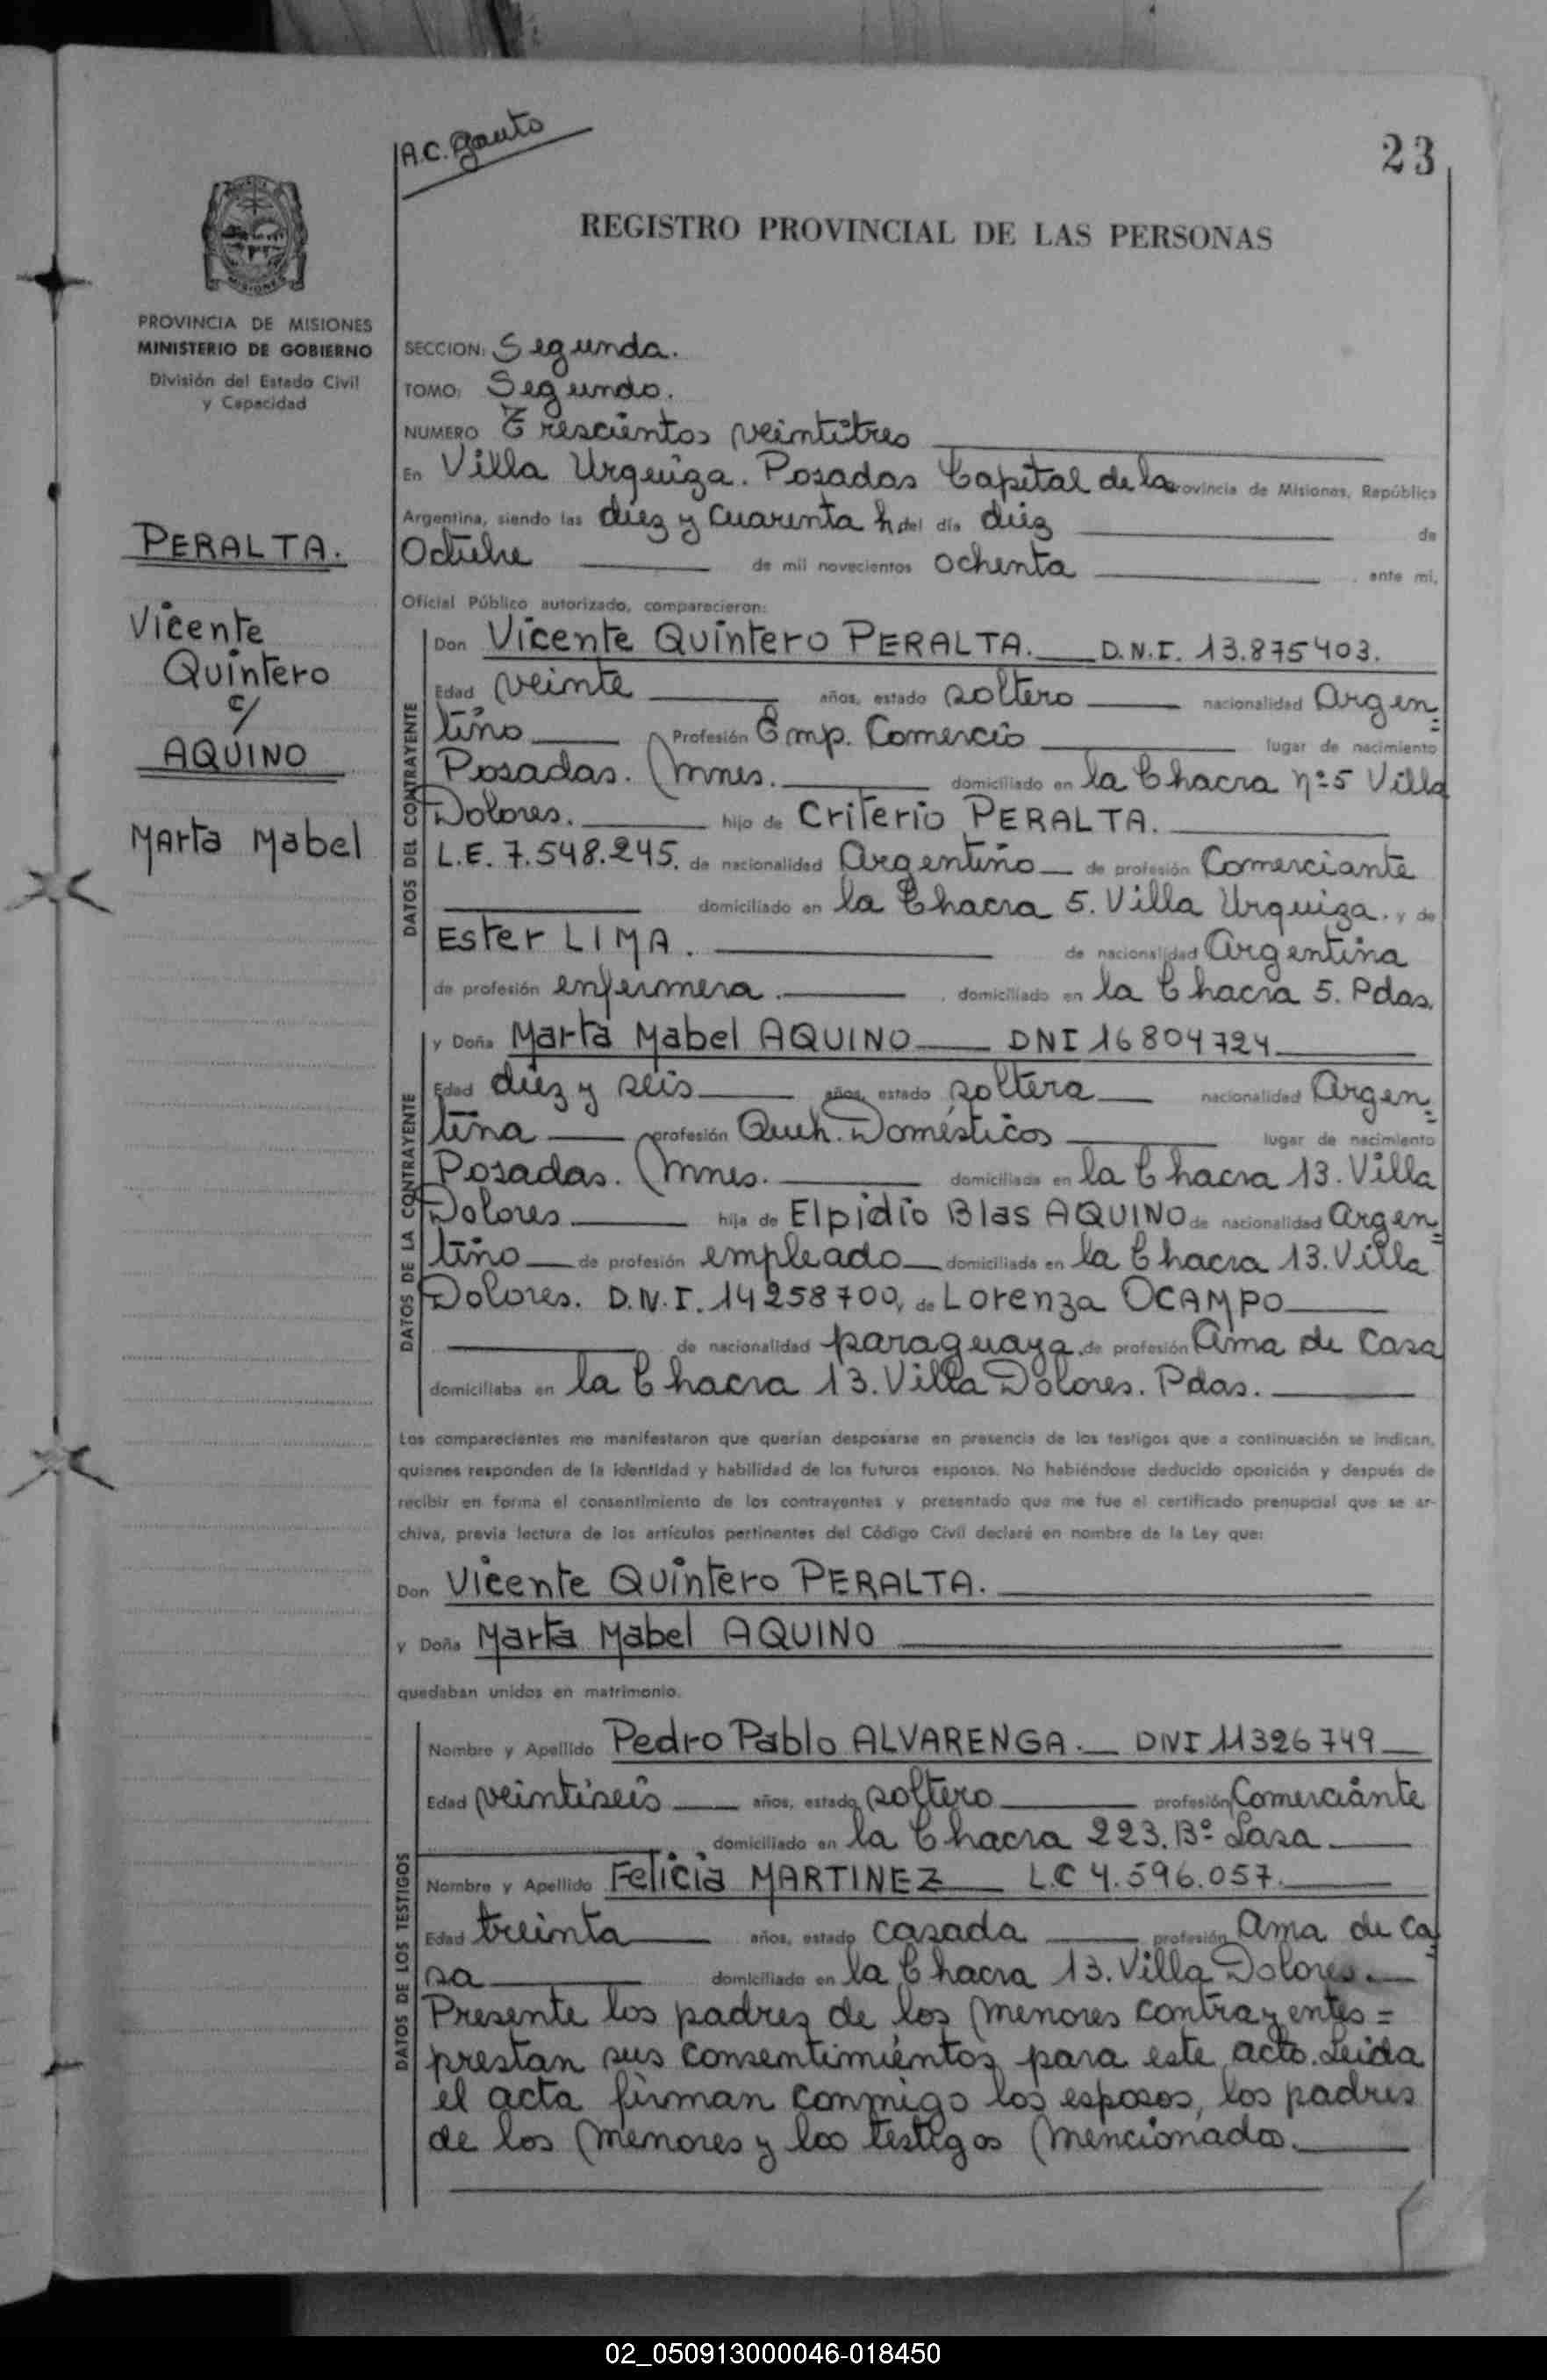 A.C. Gauto
23
REGISTRO PROVINCIAL DE LAS PERSONAS
MISIONES
PROVINCIA DE MISIONES
MINISTERIO DE GOBIERNO
División del Estado Civil
y Capacidad
PERALTA.
Vicente
Quintero
c/
AQUINO
Marta Mabel
SECCION: Segunda.
TOMO: Segundo.
NUMERO Trescientos veintitres
En Villa Urquiza. Posadas Capital de la Provincia de Misiones, República
Argentina, siendo las diez y cuarenta h del día diez de
Octubre de mil novecientos ochenta, ante mi,
Oficial Público autorizado, comparecieron:
DATOS DEL CONTRAYENTE
Don Vicente Quintero PERALTA. D.N.I. 13.875403.
Edad veinte años, estado soltero nacionalidad Argen=
tino Profesión Emp. Comercio lugar de nacimiento
Posadas. Mnes. domiciliado en la Chacra nº5 Villa
Dolores. hijo de Criterio PERALTA.
L.E. 7.548.245. de nacionalidad Argentino de profesión Comerciante
domiciliado en la Chacra 5. Villa Urquiza. y de
Ester LIMA. de nacionalidad Argentina
de profesión enfermera. domiciliado en la Chacra 5. Pdas.
DATOS DE LA CONTRAYENTE
y Doña Marta Mabel AQUINO DNI 16804724
Edad diez y seis años, estado soltera nacionalidad Argen=
tina profesión Queh. Domésticos lugar de nacimiento
Posadas. Mnes. domiciliada en la Chacra 13. Villa
Dolores hija de Elpidio Blas AQUINO de nacionalidad Argen=
tino de profesión empleado domiciliada en la Chacra 13. Villa
Dolores. D.N.I. 14258700, de Lorenza OCAMPO
de nacionalidad paraguaya, de profesión Ama de Casa
domiciliaba en la Chacra 13. Villa Dolores. Pdas.
Los comparecientes me manifestaron que querían desposarse en presencia de los testigos que a continuación se indican,
quienes responden de la identidad y habilidad de los futuros esposos. No habiéndose deducido oposición y después de
recibir en forma el consentimiento de los contrayentes y presentado que me fue el certificado prenupcial que se ar-
chiva, previa lectura de los artículos pertinentes del Código Civil declaré en nombre de la Ley que:
Don Vicente Quintero PERALTA.
y Doña Marta Mabel AQUINO
quedaban unidos en matrimonio.
DATOS DE LOS TESTIGOS
Nombre y Apellido Pedro Pablo ALVARENGA. DNI 11326749
Edad veintiseis años, estado soltero profesión Comerciante
domiciliado en la Chacra 223. Bº Sasa
Nombre y Apellido Felicia MARTINEZ L.C 4.596.057.
Edad treinta años, estado casada profesión Ama de ca=
sa domiciliado en la Chacra 13. Villa Dolores.
Presente los padres de los menores contrayentes =
prestan sus consentimientos para este acto. Leida
el acta firman conmigo los esposos, los padres
de los menores y los testigos mencionados.
02_050913000046-018450